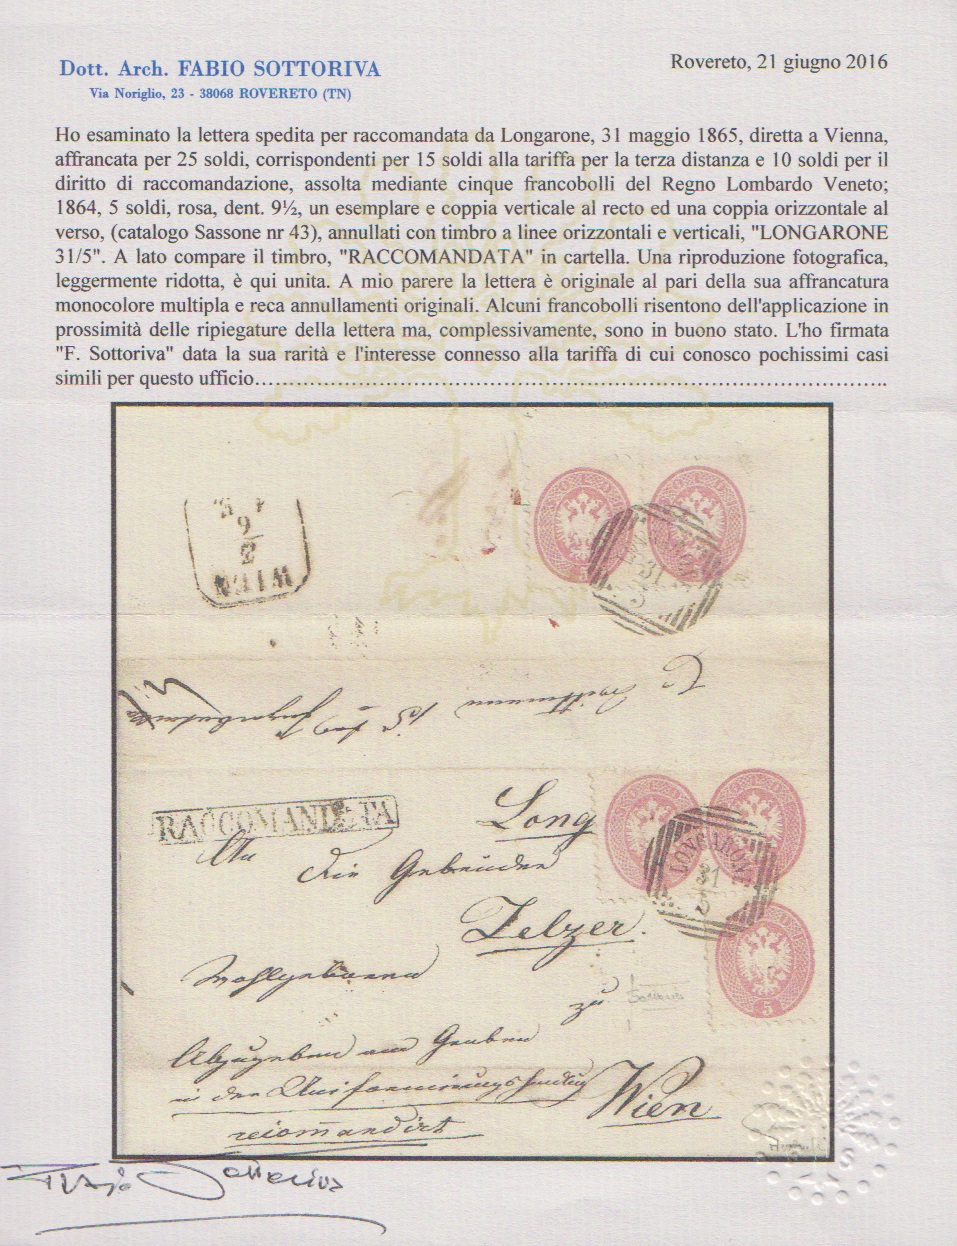 Dott. Arch. FABIO SOTTORIVA
Via Noriglio, 23 - 38068 ROVERETO (TN)
Rovereto, 21 giugno 2016
Ho esaminato la lettera spedita per raccomandata da Longarone, 31 maggio 1865, diretta a Vienna,
affrancata per 25 soldi, corrispondenti per 15 soldi alla tariffa per la terza distanza e 10 soldi per il
diritto di raccomandazione, assolta mediante cinque francobolli del Regno Lombardo Veneto;
1864, 5 soldi, rosa, dent. 9½, un esemplare e coppia verticale al recto ed una coppia orizzontale al
verso, (catalogo Sassone nr 43), annullati con timbro a linee orizzontali e verticali, "LONGARONE
31/5". A lato compare il timbro, "RACCOMANDATA" in cartella. Una riproduzione fotografica,
leggermente ridotta, è qui unita. A mio parere la lettera è originale al pari della sua affrancatura
monocolore multipla e reca annullamenti originali. Alcuni francobolli risentono dell'applicazione in
prossimità delle ripiegature della lettera ma, complessivamente, sono in buono stato. L'ho firmata
"F. Sottoriva" data la sua rarità e l'interesse connesso alla tariffa di cui conosco pochissimi casi
simili per questo ufficio
5
31
WIEN
RACCOMANDATA
Long
LONGARONE
31
5
An
die Gebrüder
Zelzer.
Wohlgeboren
zu
5
Abzugeben am Graben
in der Uniformirungs
Wien
recomandirt